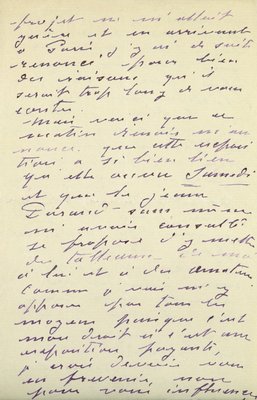 projet ne m'allait
guère et en arrivant
à Paris, j'y ai de suite
renoncé pour bien
des raisons qu'il
serait trop long de vous
conter.
Mais voici que ce
matin Renoir m'an
nonce que cette exposi
tion a si bien lieu
qu'elle ouvre Samedi
et que le jeune
Durand sans même
m'avoir consulté
se propose d'y mettre
des tableaux de moi
à lui et à des amateurs
comme à vous m'y
opposer par tous les
moyens puisque c'est
mon droit et c'est une
exposition payante,
je crois devoir vous
en prévenir, non
pour vous influencer